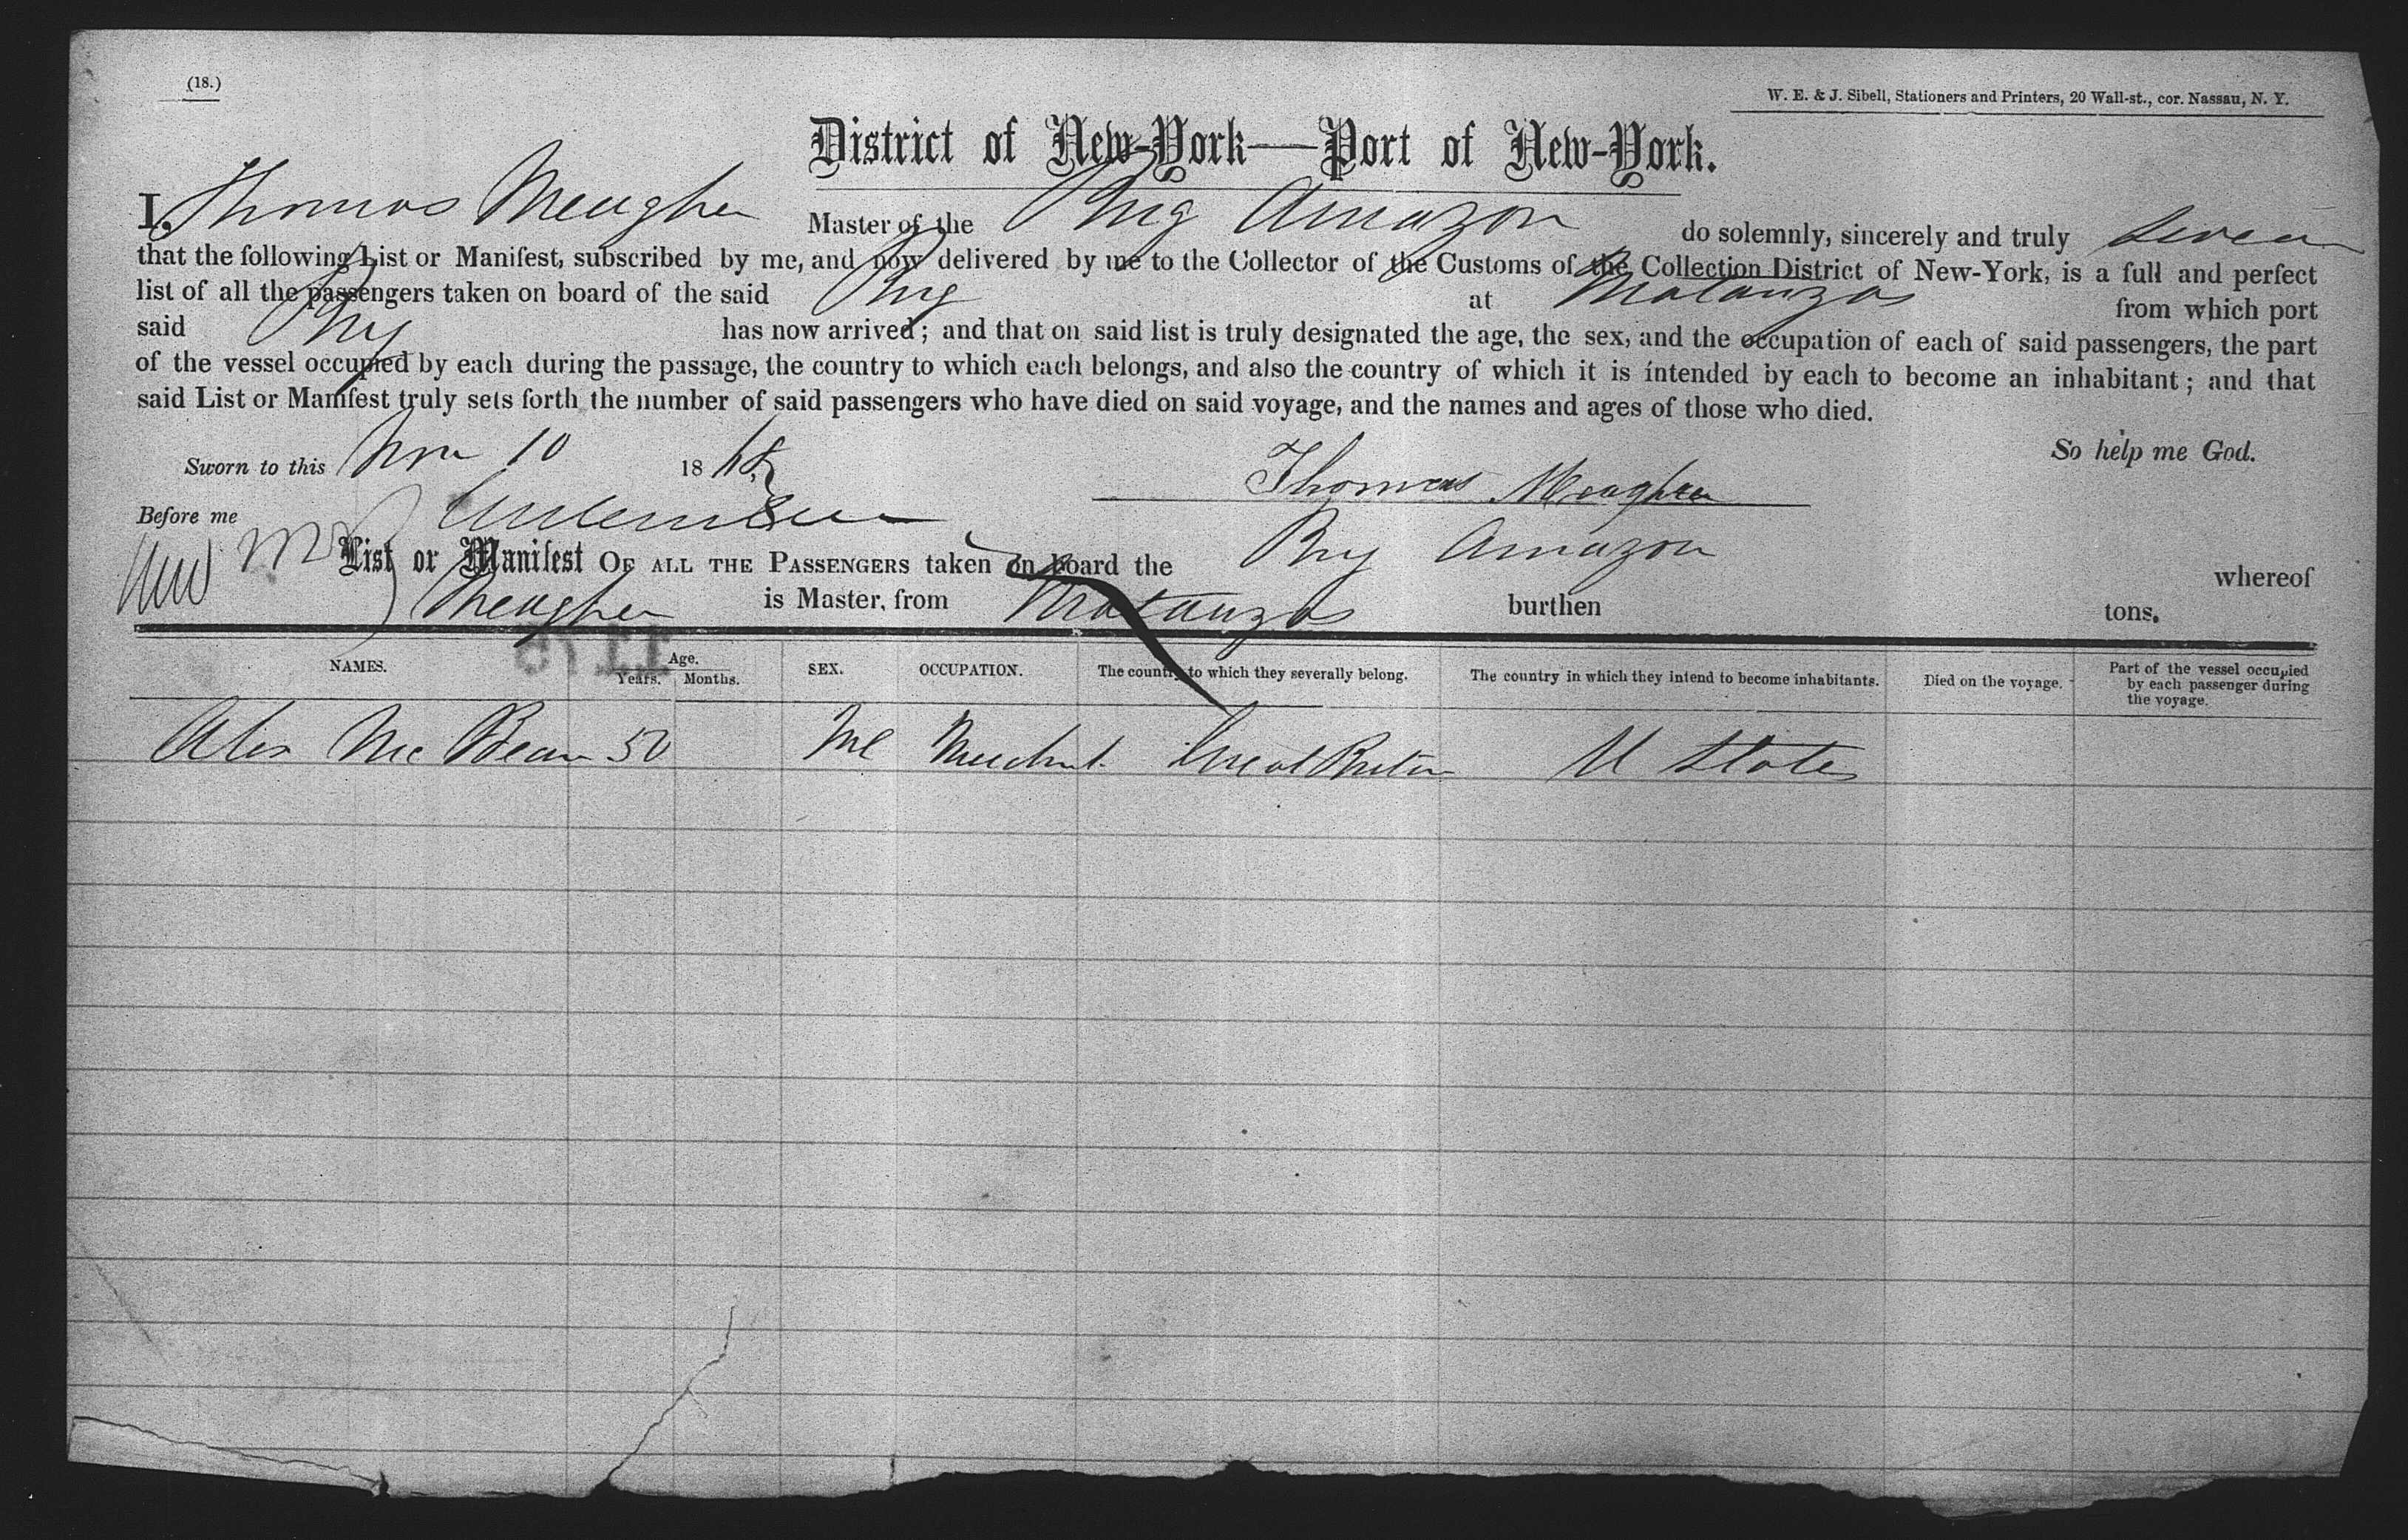 (18.)
W. E. & J. Sibell, Stationers and Printers, 20 Wall-st., cor. Nassau, N. Y.
District of New-York—Port of New-York.
I, Thomas Meagher Master of the Brig Amazon do solemnly, sincerely and truly swear
that the following List or Manifest, subscribed by me, and now delivered by me to the Collector of the Customs of the Collection District of New-York, is a full and perfect
list of all the passengers taken on board of the said Brig at Matanzas from which port
said Brig has now arrived; and that on said list is truly designated the age, the sex, and the occupation of each of said passengers, the part
of the vessel occupied by each during the passage, the country to which each belongs, and also the country of which it is intended by each to become an inhabitant; and that
said List or Manifest truly sets forth the number of said passengers who have died on said voyage, and the names and ages of those who died.
So help me God.
Sworn to this Nov 10 1868
Thomas Meagher
Before me
List or Manifest OF ALL THE PASSENGERS taken on board the Brig Amazon whereof
Meagher is Master, from Matanzas burthen tons.
NAMES. Age. Years. Months. SEX. OCCUPATION. The country to which they severally belong. The country in which they intend to become inhabitants. Died on the voyage. Part of the vessel occupied by each passenger during the voyage.
Alex McBean 50 Ml Merchnt Great Britain U States